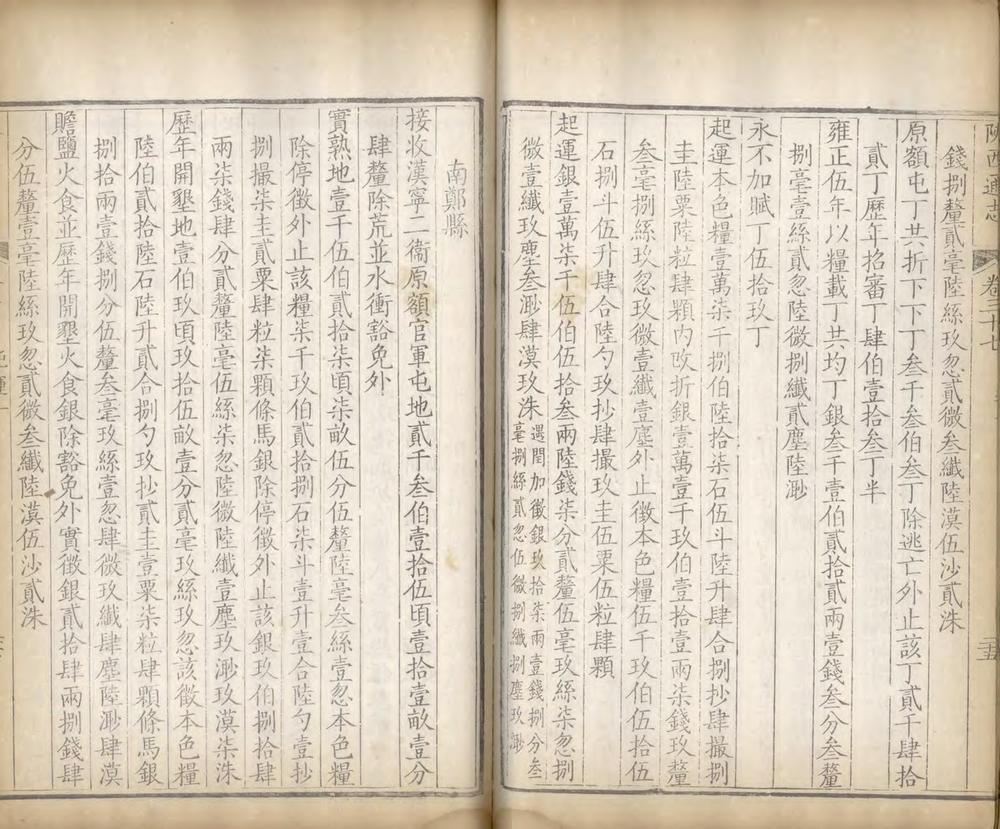 陝西通志 卷三十七
錢捌釐貳毫陸絲玖忽貳微叁纖陸漠伍沙貳洙
原額屯丁共折下下丁叁千叁伯叁丁除逃亡外止該丁貳千肆拾
貳丁歷年招審丁肆伯壹拾叁丁半
雍正伍年以糧載丁共均丁銀叁千壹伯貳拾貳兩壹錢叁分叁釐
捌毫壹絲貳忽陸微捌纖貳塵陸渺
永不加賦丁伍拾玖丁
起運本色糧壹萬柒千捌伯陸拾柒石伍斗陸升肆合捌抄肆撮捌
圭陸粟陸粒肆顆內改折銀壹萬壹千玖伯壹拾壹兩柒錢玖釐
叁毫捌絲玖忽玖微壹纖壹塵外止徵本色糧伍千玖伯伍拾伍
石捌斗伍升肆合陸勺玖抄肆撮玖圭伍粟伍粒肆顆
起運銀壹萬柒千伍伯伍拾叁兩陸錢柒分貳釐伍毫玖絲柒忽捌
微壹纖玖塵叁渺肆漠玖洙遇閏加徵銀玖拾柒兩壹錢捌分叁
毫捌絲貳忽伍微捌纖捌塵玖渺
南鄭縣
接收漢寧二衛原額官軍屯地貳千叁伯壹拾伍頃壹拾壹畝壹分
肆釐除荒並水衝豁免外
實熟地壹千伍伯貳拾柒頃柒畝伍分伍釐陸毫叁絲壹忽本色糧
除停徵外止該糧柒千玖伯貳拾捌石柒斗壹升壹合陸勺壹抄
捌撮柒圭貳粟肆粒柒顆條馬銀除停徵外止該銀玖伯捌拾肆
兩柒錢肆分貳釐陸毫伍絲柒忽陸微陸纖壹塵玖渺玖漠柒洙
歷年開墾地壹伯玖頃玖拾伍畝壹分貳毫玖絲玖忽該徵本色糧
陸伯貳拾陸石陸升貳合捌勺玖抄貳圭壹粟柒粒肆顆條馬銀
捌拾兩壹錢捌分伍釐叁毫玖絲壹忽肆微玖纖肆塵陸渺肆漠
贍鹽火食並歷年開墾火食銀除豁免外實徵銀貳拾肆兩捌錢肆
分伍釐壹毫陸絲玖忽貳微叁纖陸漠伍沙貳洙